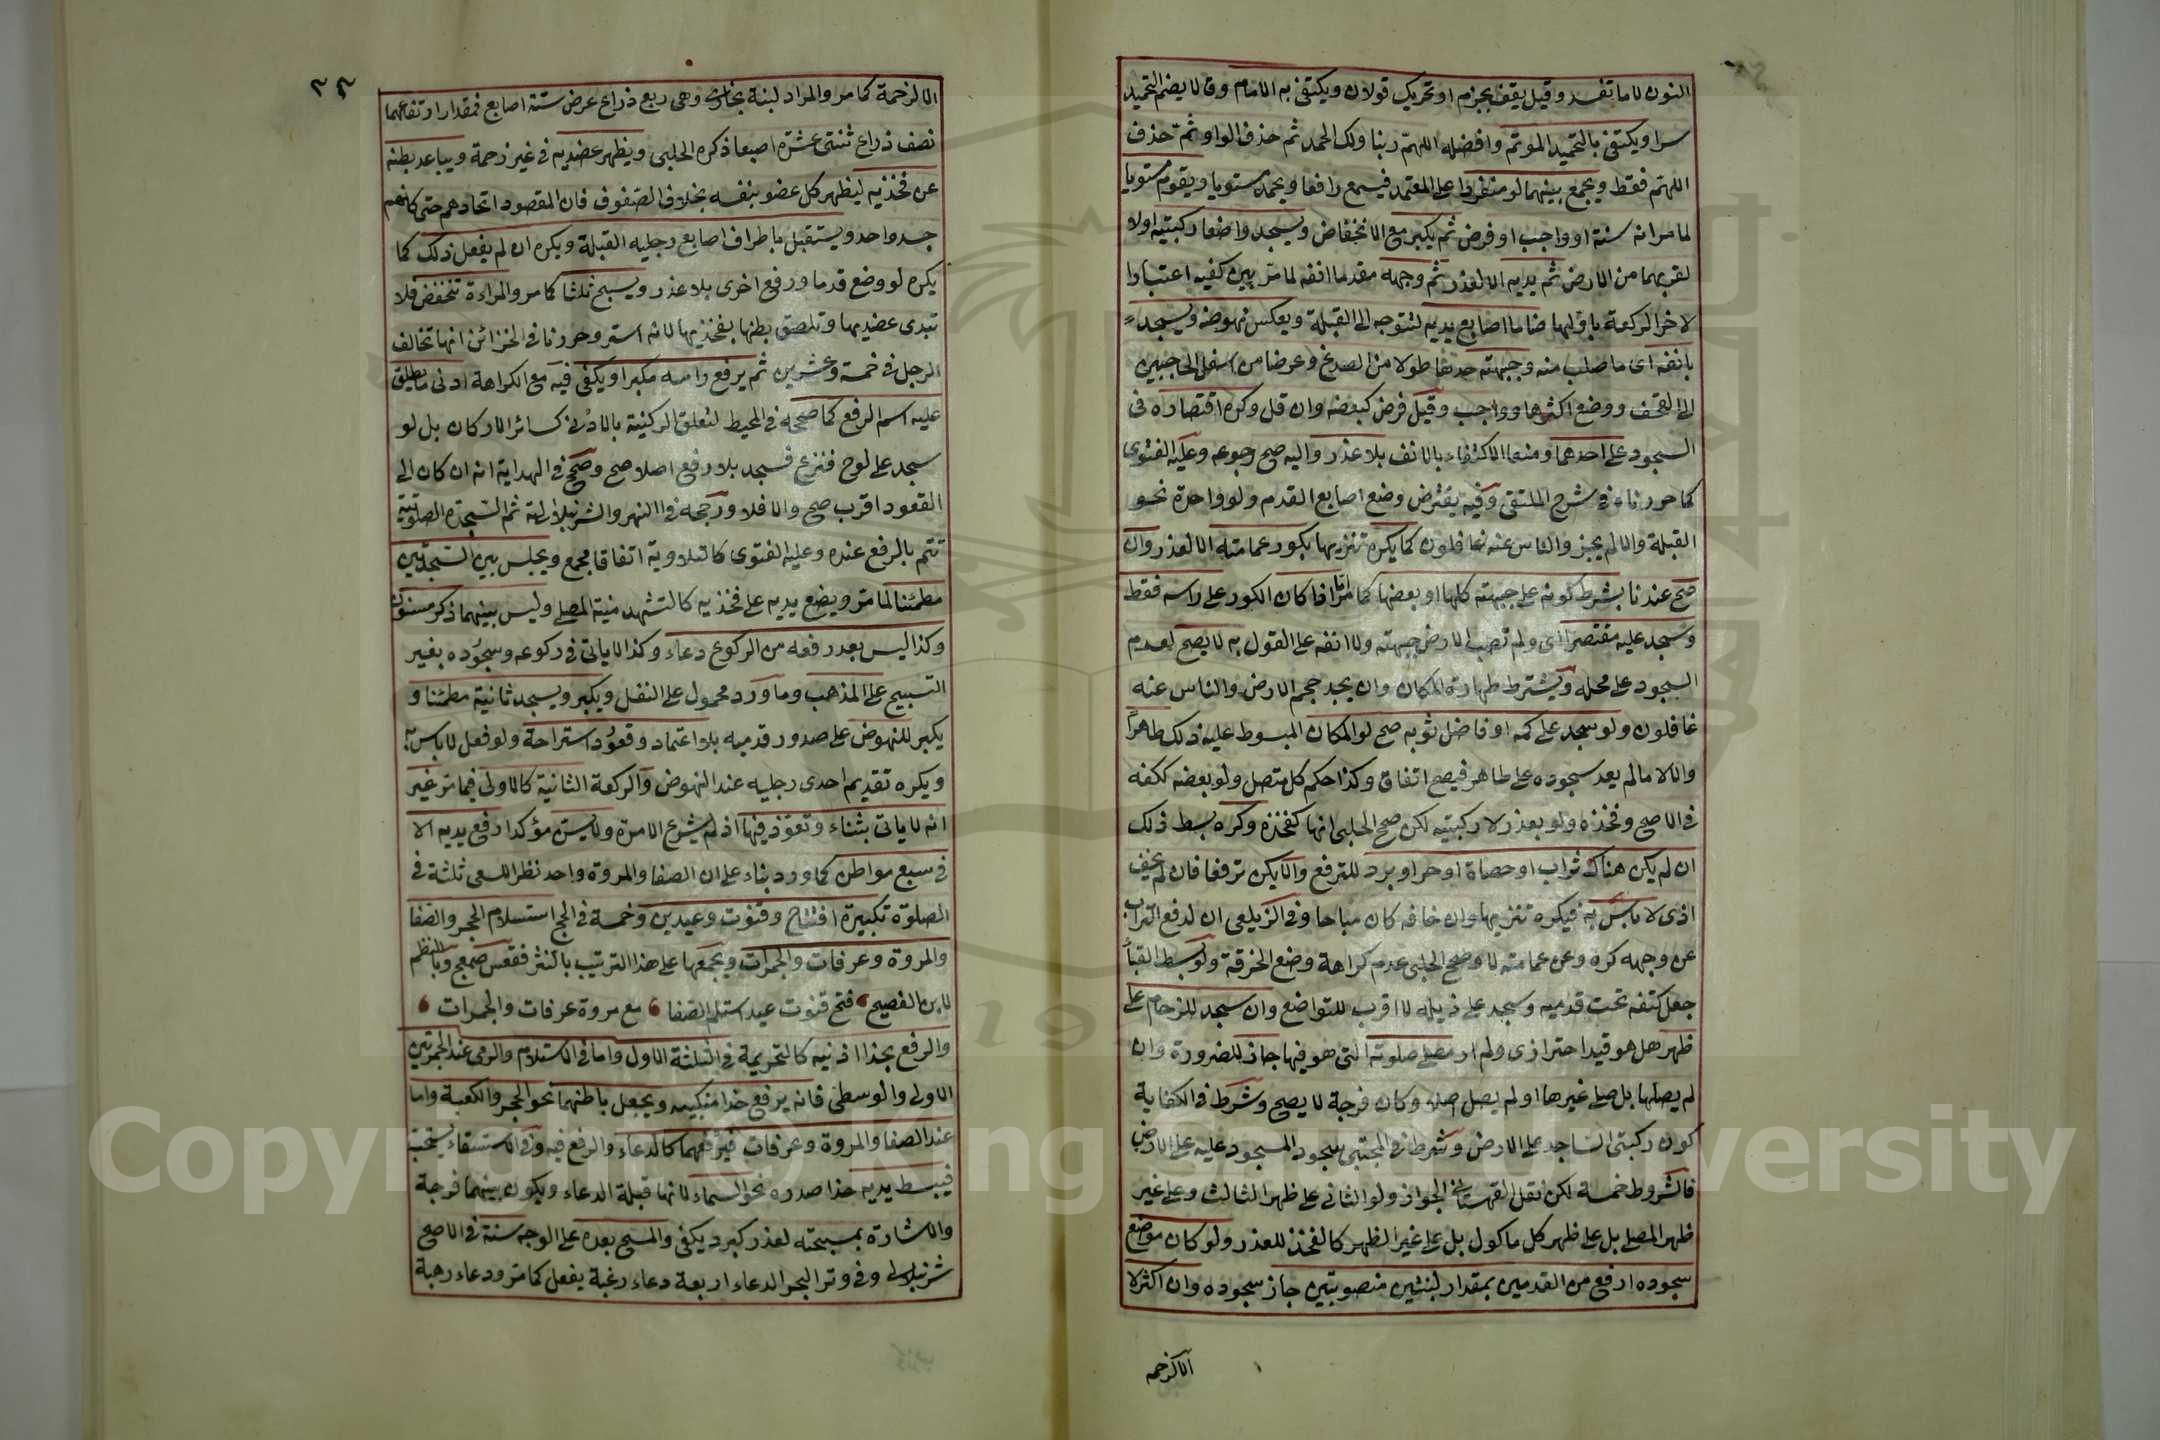 النون لاما تفسد وقيل يقف بجزم او تحريك قولان ويكتفى به الامام وقالا يضم التحميد
سرا ويكتفى بالتحميد الموتم وافضله اللهمّ ربنا ولك الحمد ثم حذف الواو ثمّ حذف
اللهمّ فقط ويجمع بينهما لو منفردا على المعتمد فيسمع رافعا ويحمد مستويا ويقوم مستويا
لما مر انه سنة او واجب او فرض ثم يكبر مع الانخفاض ويسجد واضعا ركبتيه اولا
لقربهما من الارض ثم يديه الا لعذر ثم وجهه مقدما انفه لما مرّ بين كفيه اعتبارا
لاخر الركعة باوّلها ضاما اصابع يديه لتتوجه الى القبلة ويعكس نهوضه ويسجد
بانفه اى ما صلب منه وجبهته حدها طولا من الصدغ وعرضا من اسفل الحاجبين
الى القحف ووضع اكثرها وواجب وقيل فرض كبعضه وان قل وكره اقتصاره فى
السجود على احدهما ومنعا الاكتفاء بالانف بلا عذر واليه صح رجوعه وعليه الفتوى
كما حررناه فى شرح الملتقى وفيه يفترض وضع اصابع القدم ولو واحدة نحو
القبلة والا لم يجز والناس عنه غافلون كما يكره تنزيها بكور عمامته الا لعذر وان
صح عندنا بشرط كونه على جبهته كلها او بعضها كما مرّ اما اذا كان الكور على راسه فقط
وسجد عليه مقتصرا اى ولم تصب الارض جبهته ولا انفه على القول به لا يصح لعدم
السجود على محله ويشترط طهارة المكان وان يجد حجم الارض والناس عنه
غافلون ولو سجد على كمه او فاضل ثوبه صح لو المكان المبسوط عليه ذلك طاهرًا
والا لا مالم يعد سجوده على طاهر فيصح اتفاق وكذا حكم كل متصل ولو بعضه ككفه
فى الاصح وفخذه ولو بعذر لا ركبتيه لكن صحح الحلبى انها كفخذه وكره بسط ذلك
ان لم يكن هناك تراب او حصاة او حر او برد للترفع والا يكن ترفعا فان لم يخف
اذى لا باس به فيكره تنزيها وان خافه كان مباحا وفى الزيلعى ان لدفع التراب
عن وجهه كره وعن عمامته لا وصحح الحلبى عدم كراهة وضع الخرقة ولو بسط القباء
جعل كتفه تحت قدميه وسجد على ذيله لا اقرب للتواضع وان سجد للزحام على
ظهر هل هو قيد احترازى ولم ار مصل صلوته التى هو فيها جاز للضرورة وان
لم يصلها بل صلى غيرها او لم يصل اصلا وكان فرجة لا يصح وشرط فى الكفاية
كون ركبتى الساجد على الارض وشرط فى المجتبى سجود المسجود عليه على الارض
فالشروط خمسة لكن نقل القهستانى الجواز ولو الثانى على ظهر الثالث وعلى غير
ظهر المصلى بل على ظهر كل ماكول بل على غير الظهر كالفخذ للعذر ولو كان موضع
سجوده ارفع من القدمين بمقدار لبنتين منصوبتين جاز سجوده وان اكثر لا
الا لزحمه
٣٣
الا لزحمة كما مر والمراد لبنة بخارى وهى ربع ذراع عرض ستة اصابع فمقدار ارتفاعهما
نصف ذراع ثنتى عشرة اصبعا ذكره الحلبى ويظهر عضديه فى غير زحمة ويباعد بطنه
عن فخذيه ليظهر كل عضو بنفسه بخلاف الصّفوف فان المقصود اتحادهم حتى كانهم
جسد واحد ويستقبل باطراف اصابع رجليه القبلة ويكره ان لم يفعل ذلك كما
يكره لو وضع قدما ورفع اخرى بلا عذر ويسبح ثلثا كما مر والمراءة تنخفض فلا
تبدى عضديها وتلصق بطنها بفخذيها لانه استر وحررنا فى الخزائن انها تخالف
الرجل فى خمسة وعشرين ثم يرفع راسه مكبرا ويكفى فيه مع الكراهة ادنى ما يطلق
عليه اسم الرفع كما صححه فى المحيط لتعلق الركنية بالادنى كسائر الاركان بل لو
سجد على لوح فنزع فسجد بلا رفع اصلا صح وصحح فى الهداية انه ان كان الى
القعود اقرب صح والا فلا ورجحه فى النهر والشرنبلالية ثم السّجدة الصلوتية
تتم بالرفع عنده وعليه الفتوى كالتلاوية اتفاقا مجمع ويجلس بين السجدتين
مطمئنا لما مرّ ويضع يديه على فخذيه كالتشهد منية المصلى وليس بينهما ذكر مسنون
وكذا ليس بعد رفعه من الركوع دعاء وكذا لا ياتى فى ركوعه وسجوده بغير
التسبيح على المذهب وما ورد محمول على النفل ويكبر ويسجد ثانية مطمئنا و
يكبر للنهوض على صدور قدميه بلا اعتماد وقعود استراحة ولو فعل لا باس به
ويكره تقديم احدى رجليه عند النهوض والركعة الثانية كالاولى فيما مرّ غير
انه لا ياتى بثناء وتعوّذ فيها اذ لم يشرع الا مرة ولا يسنّ مؤكدا رفع يديه الا
فى سبع مواطن كما ورد بناء على ان الصفا والمروة واحد نظرا للسعى ثلثة فى
الصلوة تكبيرة افتتاح وقنوت وعيدين وخمسة فى الحج استسلام الحجر والصّفا
والمروة وعرفات والجمرات ويجمعها على هذا الترتيب بالنثر فقعس صمعج وبالنظم
لابن الفصيح فتح قنوت عيد استلم الصّفا مع مروة عرفات والجمرات
والرفع بحذا اذنيه كالتحريمة فى الثلثة الاول واما فى الاستلام والرمى عند الجمرتين
الاولى والوسطى فانه يرفع حذا منكبيه ويجعل باطنهما نحو الحجر والكعبة واما
عند الصفا والمروة وعرفات فيرفعهما كالدعاء والرفع فيه وفى الاستسقاء يستحب
فيبسط يديه حذا صدره نحو السماء لانها قبلة الدعاء ويكون بينهما فرجة
والاشارة بمسبحته لعذر كبرد يكفى والمسح بعده على الوجه سنة فى الاصح
شرنبلالى وفى وتر البحر الدعاء اربعة دعاء رغبة يفعل كما مرّ ودعاء رهبة
Copyright © King Saud University